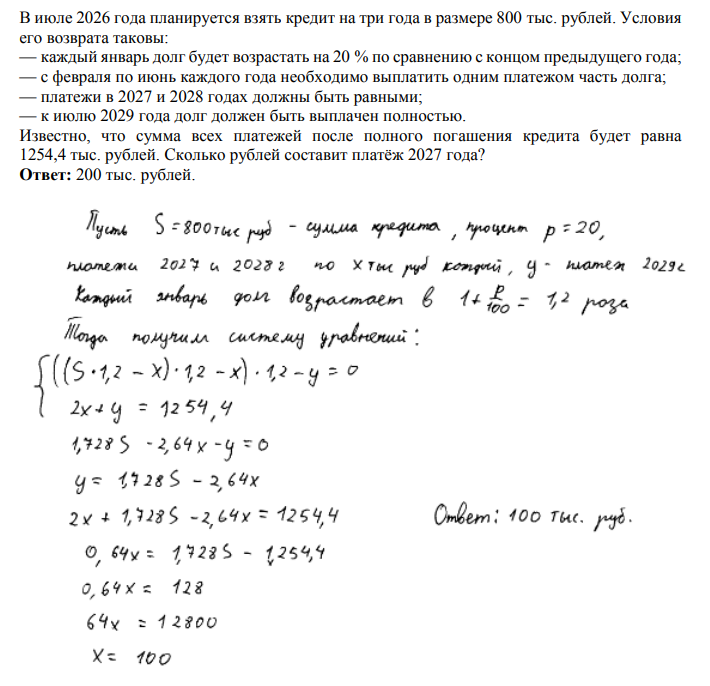 В июле 2026 года планируется взять кредит на три года в размере 800 тыс. рублей. Условия
его возврата таковы:
— каждый январь долг будет возрастать на 20 % по сравнению с концом предыдущего года;
— с февраля по июнь каждого года необходимо выплатить одним платежом часть долга;
— платежи в 2027 и 2028 годах должны быть равными;
— к июлю 2029 года долг должен быть выплачен полностью.
Известно, что сумма всех платежей после полного погашения кредита будет равна
1254,4 тыс. рублей. Сколько рублей составит платёж 2027 года?
Ответ: 200 тыс. рублей.
Пусть S = 800 тыс руб - сумма кредита, процент p = 20,
платежи 2027 и 2028 г по x тыс руб каждый, y - платеж 2029 г
Каждый январь долг возрастает в 1 + p/100 = 1,2 роза
Тогда получим систему уравнений:
{ ((S · 1,2 - x) · 1,2 - x) · 1,2 - y = 0
2x + y = 1254,4
1,728S - 2,64x - y = 0
y = 1,728S - 2,64x
2x + 1,728S - 2,64x = 1254,4
Ответ: 100 тыс. руб.
0,64x = 1,728S - 1,254,4
0,64x = 128
64x = 12800
x = 100